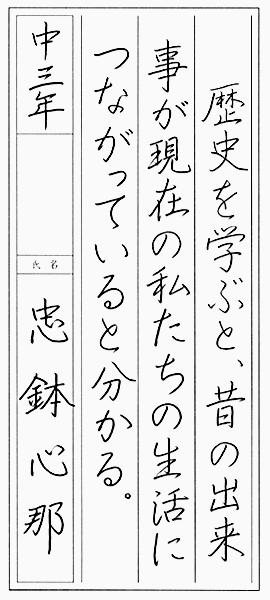 歴史を学ぶと、昔の出来
事が現在の私たちの生活に
つながっていると分かる。
中三年
氏名
忠鉢心那